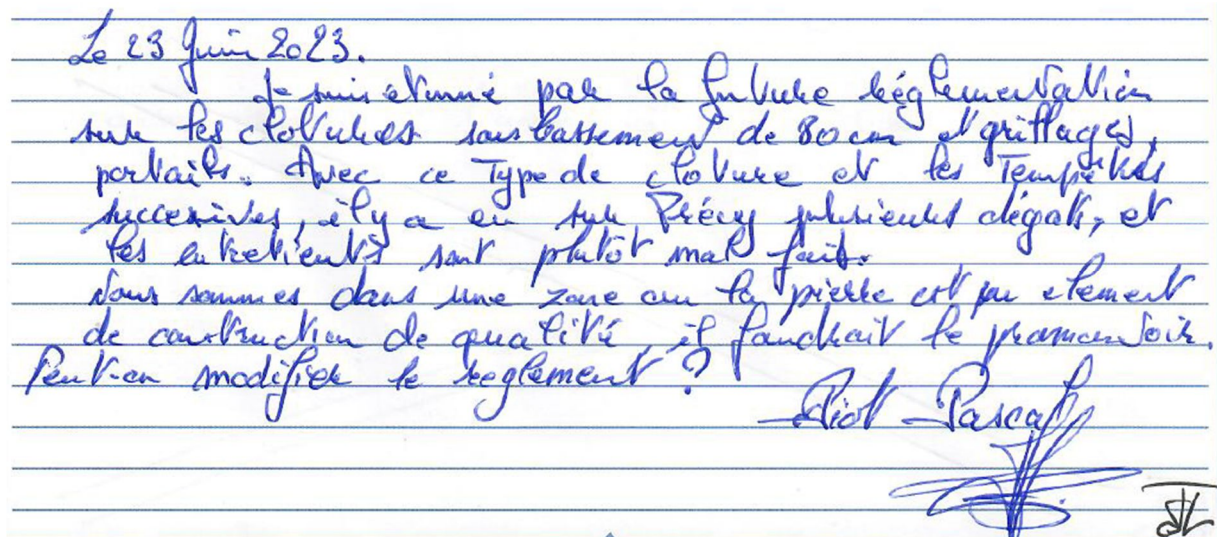 Le 23 Juin 2023.
Je suis étonné par la future réglementation
sur les clotures sousbassement de 80 cm et grillages,
portails. Avec ce Type de cloture et les Tempêtes
successives, il y a eu sur Précy plusieurs dégats, et
les entretients sont plutôt mal fait.
Nous sommes dans une zone ou la pierre est un element
de construction de qualité, il faudrait le promouvoir.
Peut-on modifier le reglement ?
Piot Pascal